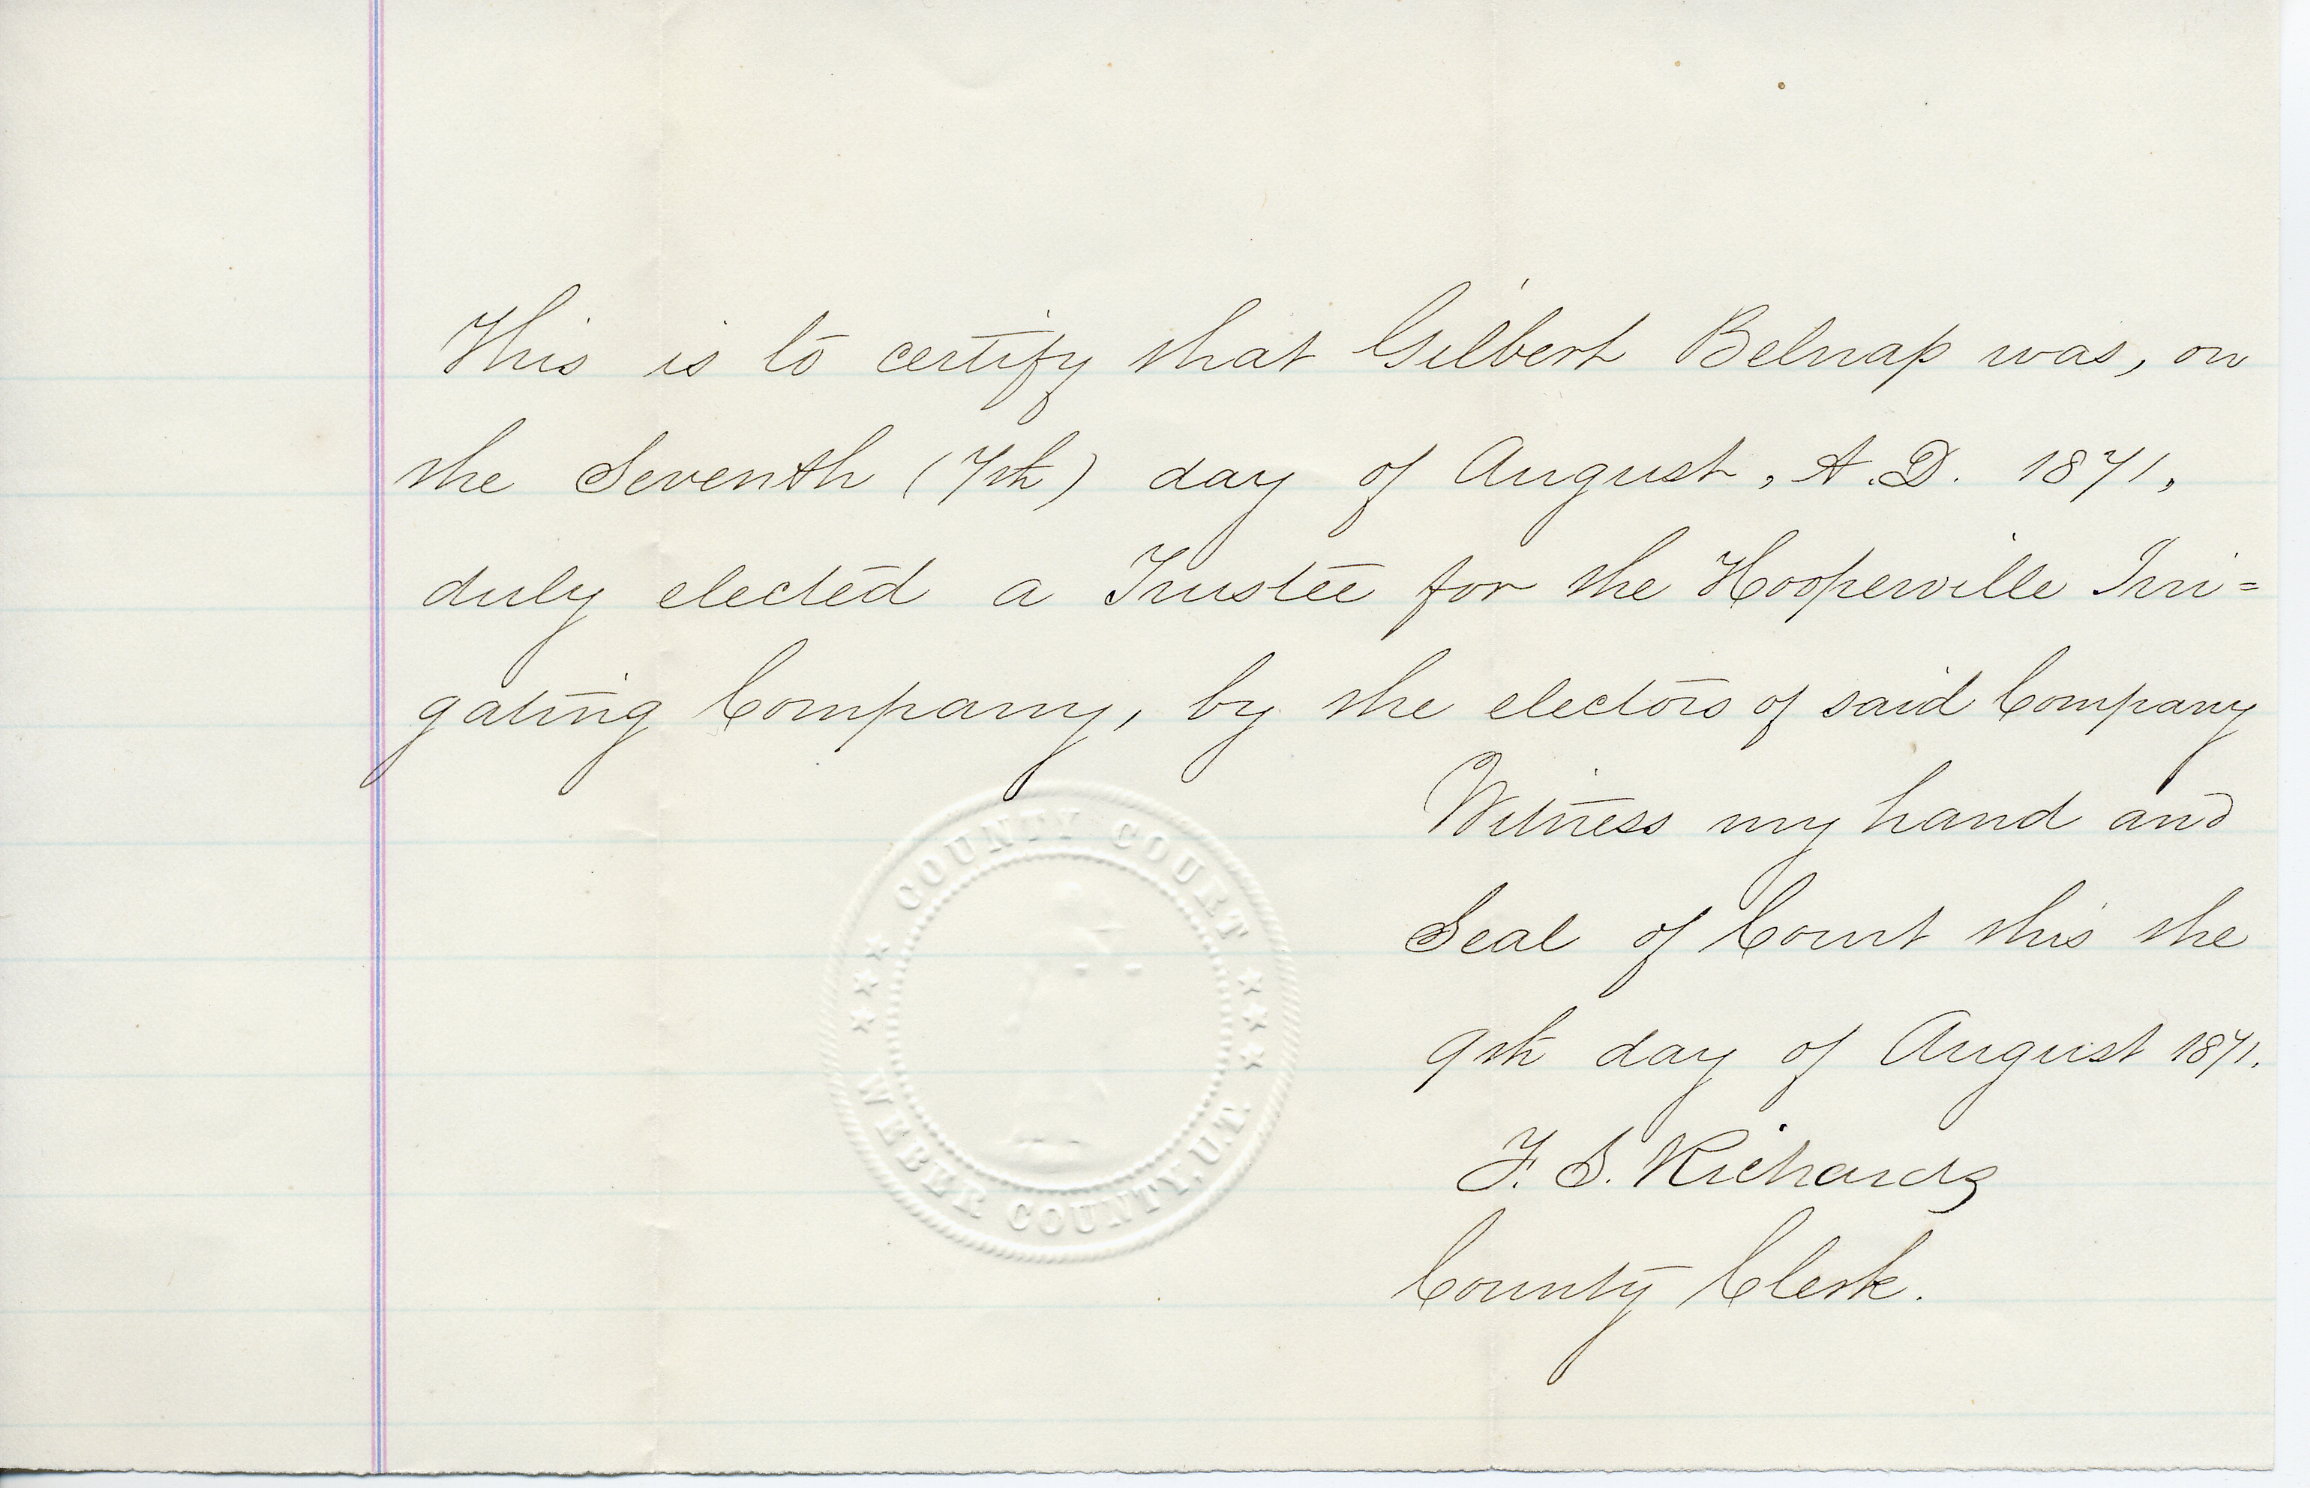 This is to certify that Gilbert Belnap was, on
the Seventh (7th) day of August, A.D. 1871,
duly elected a Trustee for the Hooperville Irri=
gating Company, by the electors of said Company
Witness my hand and
Seal of Court this the
9th day of August 1871.
F. S. Richards
County Clerk.
COUNTY COURT
WEBER COUNTY, U.T.